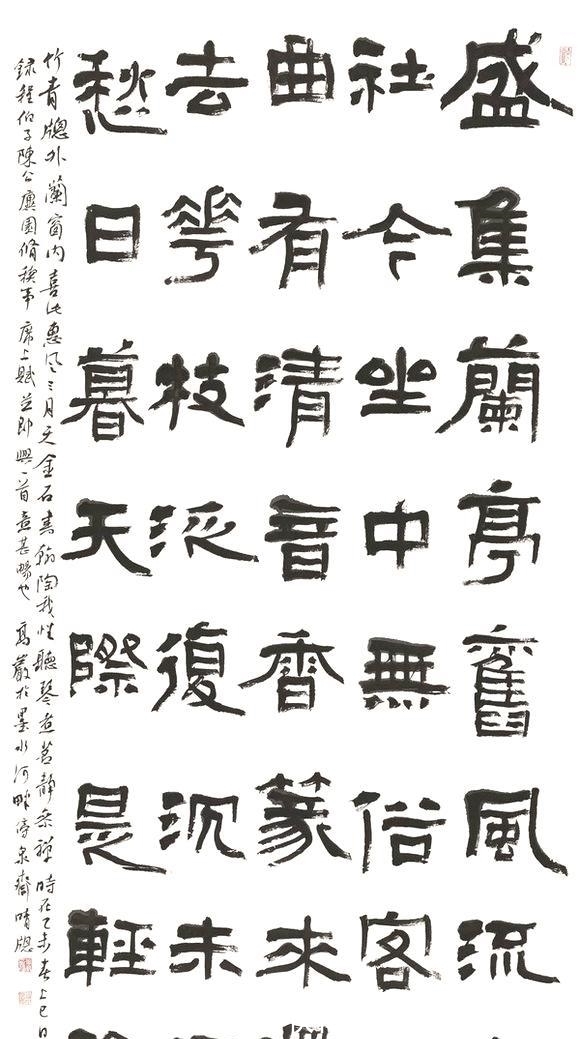 盛集蘭亭舊風流
社今坐中無俗客
曲有清音香篆來
去花枝泛復沉未
愁日暮天際是輕
竹青牕外蘭窗内喜此惠風三月天金石書翰陶我性聽琴煮茗靜參禪時在乙未春上巳日
録程伯子陳公廙園脩禊事席上賦並即興一首意甚暢也 高巖於墨水河畔泉齋晴牕